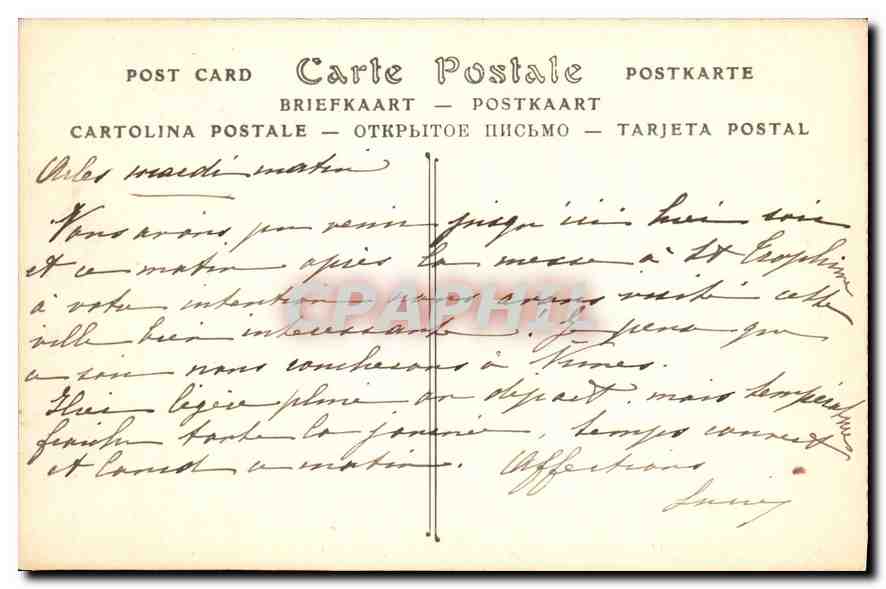 POST CARD Carte Postale POSTKARTE
BRIEFKAART — POSTKAART
CARTOLINA POSTALE — ОТКРЫТОЕ ПИСЬМО — TARJETA POSTAL
Arles mardi matin
Nous avons pu venir jusqu'ici hier soir
et ce matin après la messe à St Trophime
à votre intention nous avons visité cette
ville bien intéressante. Je pense que
ce soir nous coucherons à Nimes.
Hier légère pluie au départ, mais température
fraîche toute la journée, temps couvert
et lourd ce matin. Affections
CPAPHIL